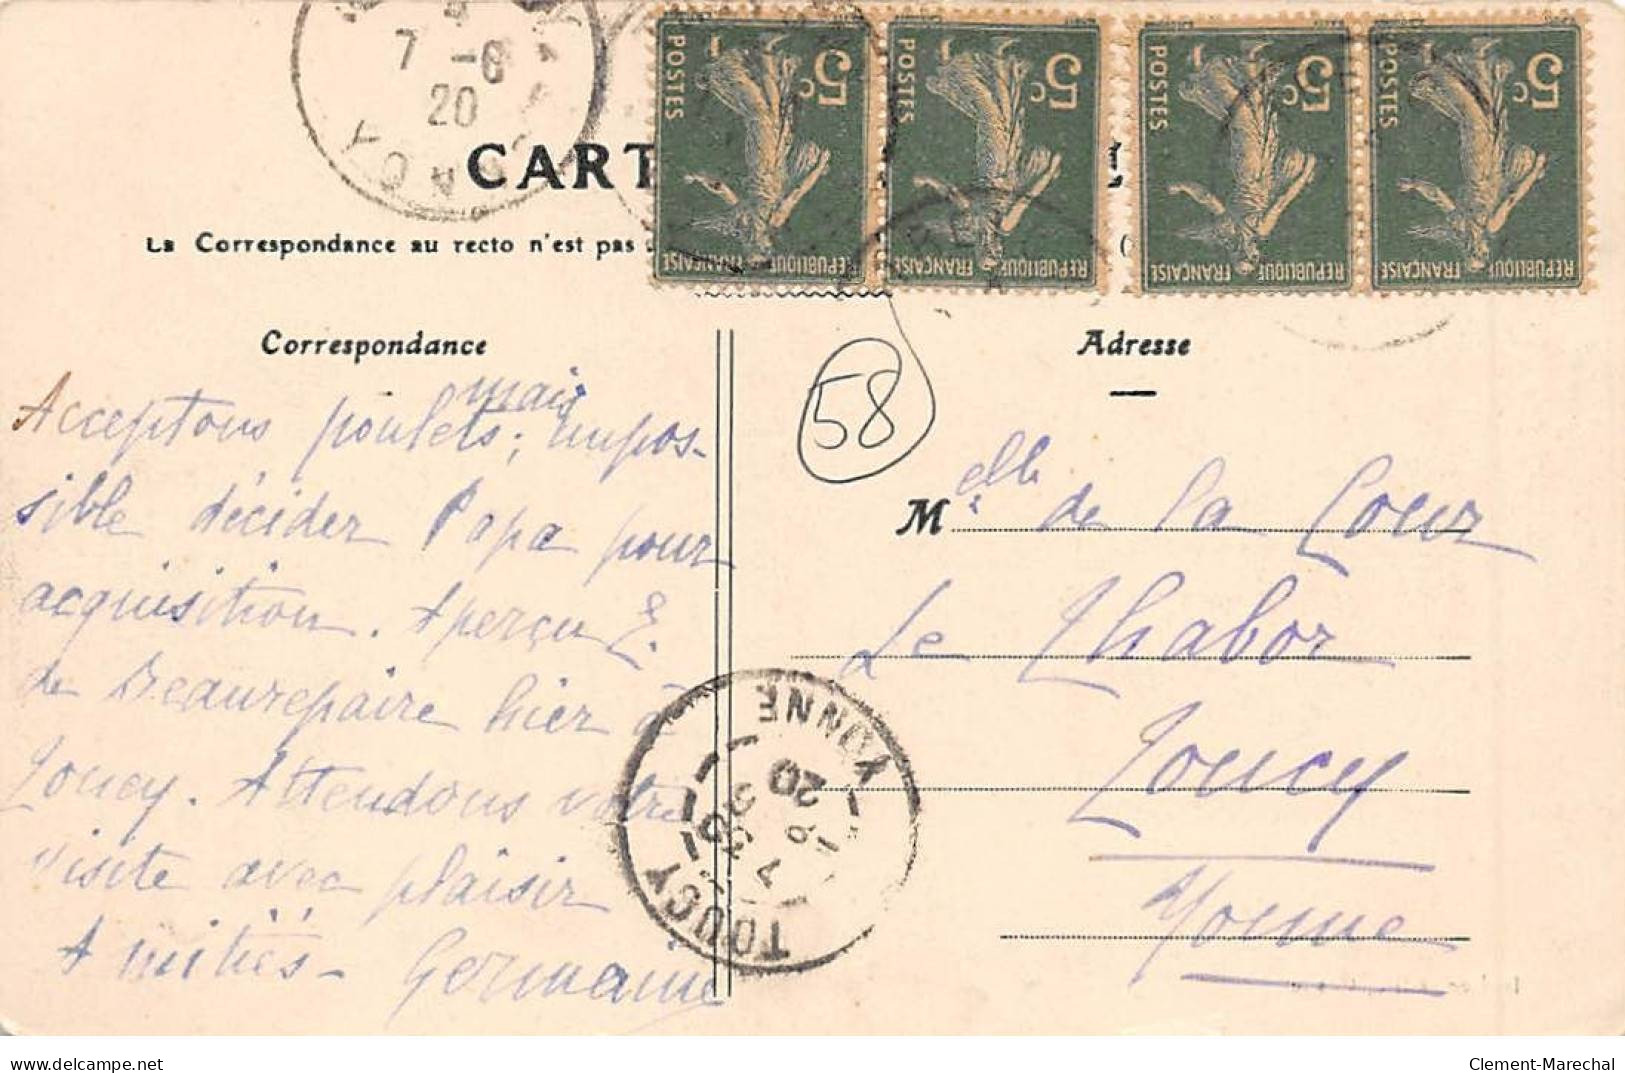 7 -6
20
YONNE
CART
POSTES
5c
REPUBLIQUE FRANÇAISE
POSTES
5c
REPUBLIQUE FRANÇAISE
POSTES
5c
REPUBLIQUE FRANÇAISE
POSTES
5c
REPUBLIQUE FRANÇAISE
La Correspondance au recto n'est pas
Correspondance
Acceptons poulets; mais impos-
sible décider Papa pour
acquisition. Aperçu E.
de Beaurepaire hier à
Toucy. Attendons votre
visite avec plaisir
Amitiés - Germaine
58
Adresse
Melle de la Cour
Le Thabor
Toucy
Yonne
TOUCY
YONNE
20
delcampe.net
Clement-Marechal